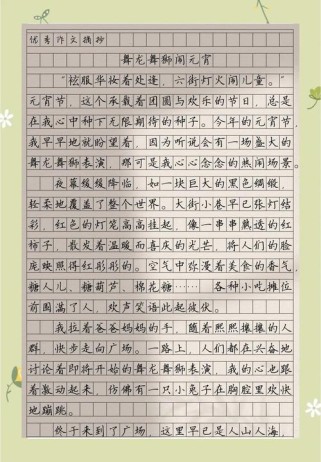 优秀作文摘抄
舞龙舞狮闹元宵
“袨服华妆着处逢，六街灯火闹儿童。”
元宵节，这个承载着团圆与欢乐的节日，总是
在我心中种下无限期待的种子。今年的元宵节，
我早早地就盼望着，因为听说会有一场盛大的
舞龙舞狮表演，那可是我心心念念的热闹场景。
夜幕缓缓降临，如一块巨大的黑色绸缎，
轻柔地覆盖了整个世界。大街小巷早已张灯结
彩，红色的灯笼高高挂起，像一串串熟透的红
柿子，散发着温暖而喜庆的光芒，将人们的脸
庞映照得红彤彤的。空气中弥漫着美食的香气，
糖人儿、糖葫芦、棉花糖……各种小吃摊位
前围满了人，欢声笑语此起彼伏。
我拉着爸爸妈妈的手，随着熙熙攘攘的人
群，快步走向广场。一路上，人们都在兴奋地
讨论着即将开始的舞龙舞狮表演，我的心也跟
着激动起来，仿佛有一只小兔子在胸腔里欢快
地蹦跳。
终于来到了广场，这里早已是人山人海，